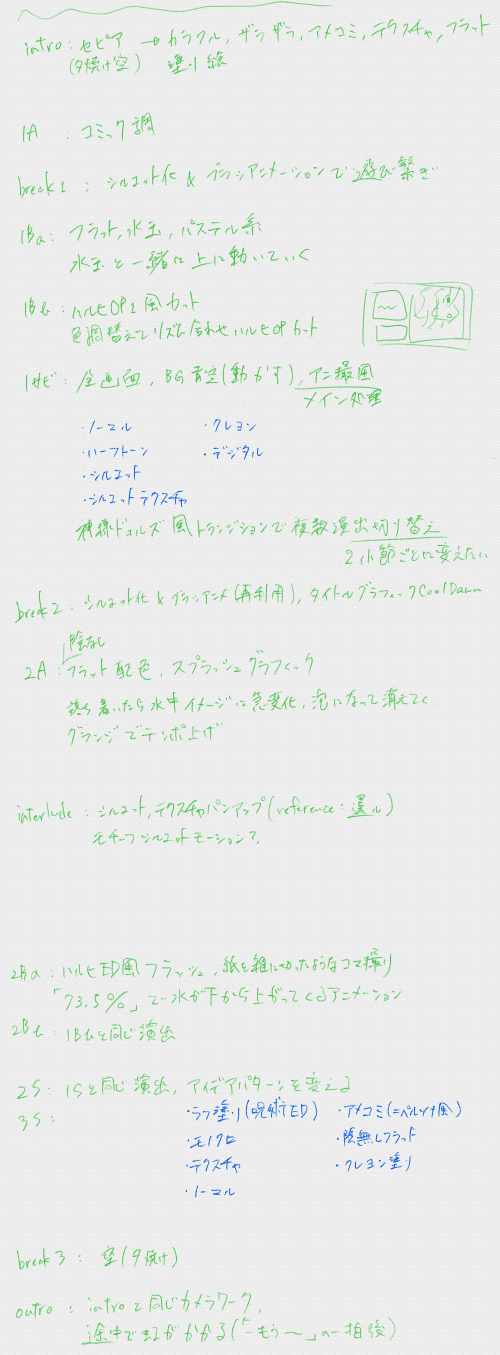 intro : セピア → カラフル, ザラザラ, アメコミ, テクスチャ, フラット
(夕焼け空) 塗り絵
1A : コミック調
break1 : シルエット化 & ブラシアニメーションで遊び繋ぎ
1Ba : フラット, 水玉, パステル系
水玉と一緒に上に動いていく
1Bb : ハルヒOP2風カット
色調替えてリズム合わせハルヒOPカット
1サビ : 全画面, BG青空(動かす), アニメ撮風
メイン処理
・ノーマル ・クレヨン
・ハーフトーン ・デジタル
・シルエット
・シルエットテクスチャ
神様ドォルズ風トランジションで複数演出切り替え
2小節ごとに変えたい
break2 : シルエット化 & ブラシアニメ(再利用), タイトルグラフィックCoolDown
陰なし
2A : フラット配色, スプラッシュグラフィック
落ち着いたら水中イメージに急変化, 泡になって消えてく
グランジでテンポ上げ
interlude : シルエット, テクスチャパンアップ (reference : 還ル)
モチーフシルエットモーションで,
2Ba : ハルヒED風フラッシュ, 紙を雑に切ったようなコマ撮り
「73.5%」で水が下から上がってくるアニメーション
2Bb : 1Bbと同じ演出
2S : 1Sと同じ演出, アイデアパターンを変える
3S :
・ラフ塗り(呪術ED) ・アメコミ(=ペルソナ風)
・モノクロ ・陰無しフラット
・テクスチャ ・クレヨン塗り
・ノーマル
break3 : 空(夕焼け)
outro : introと同じカメラワーク,
途中で虹がかかる(「もう〜」の一拍後)